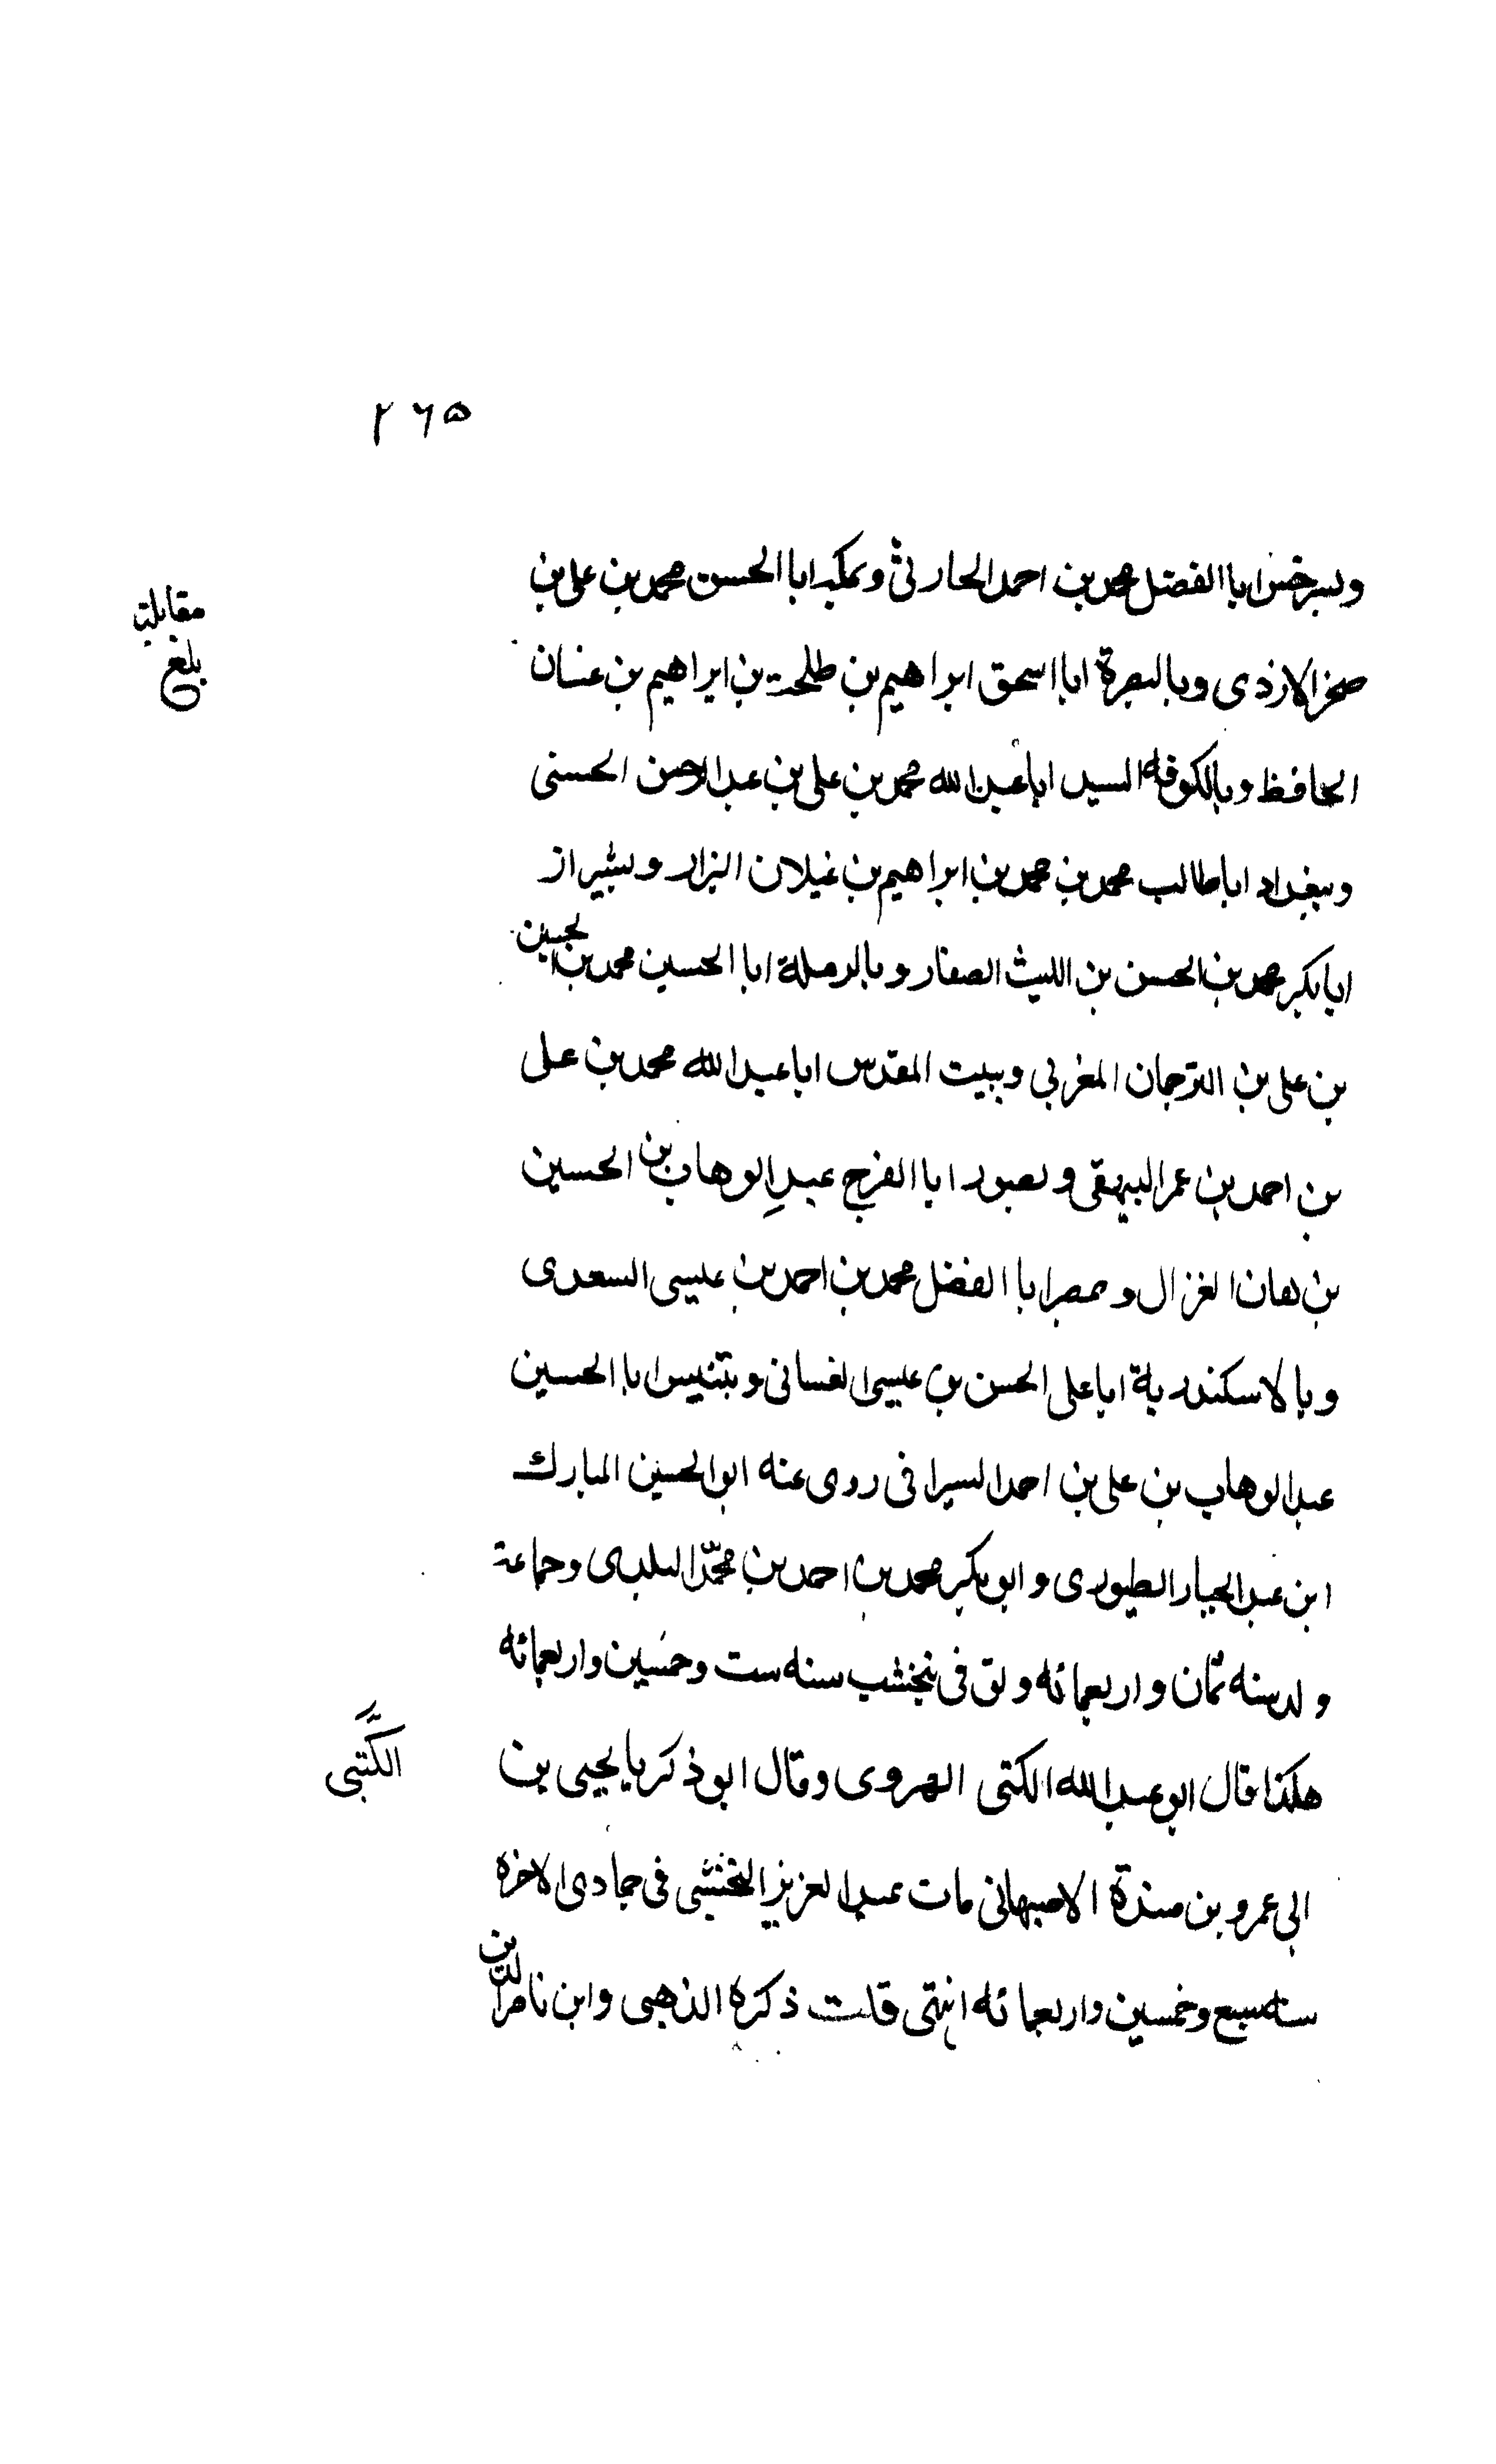 ٢٦٥
وبسرخس ابا الفضل محمد بن احمد الحارثى وبمكه ابا الحسن محمد بن على بن
صخر الازدى وبالبصرة ابا اسحق ابراهيم بن طلحة بن ابراهيم بن غسان
الحافظ وبالكوفه السيد ابا عبد الله محمد بن على بن عبد الرحمن الحسنى
وببغداد ابا طالب محمد بن محمد بن ابراهيم بن غيلان البزار وبشيراز
ابا بكر محمد بن الحسن بن الليث الصفار وبالرملة ابا الحسين محمد بن الحسين
بن على بن الترجمان المغربي وببيت المقدس ابا عبد الله محمد بن على
بن احمد بن عمر البيهقى وبصور ابا الفرج عبد الوهاب بن الحسين
بن برهان الغزال وبمصر ابا الفضل محمد بن احمد بن عيسى السعدى
وبالاسكندرية ابا على الحسن بن عيسى الغسانى وبتنيس ابا الحسين
عبد الوهاب بن على بن احمد السيرافى روى عنه ابو الحسين المبارك
ابن عبد الجبار الطيورى وابو بكر محمد بن احمد بن محمّد البلدى وجماعة
ولد سنه ثمان واربعمائه وتوفى فى بنخشب سنه ست وخمسين واربعمائه
هكذا قال ابو عبد الله الكتبى الهروى وقال ابو ذكريا يحيى بن
ابى عمرو بن مندة الاصبهانى مات عبد العزيز النخشبى فى جمادى الاخره
سنه سبع وخمسين واربعمائه انتهى قلت ذكره الذهبى وابن ناصر الدين
مقابلة
بلغ
الكُتبى